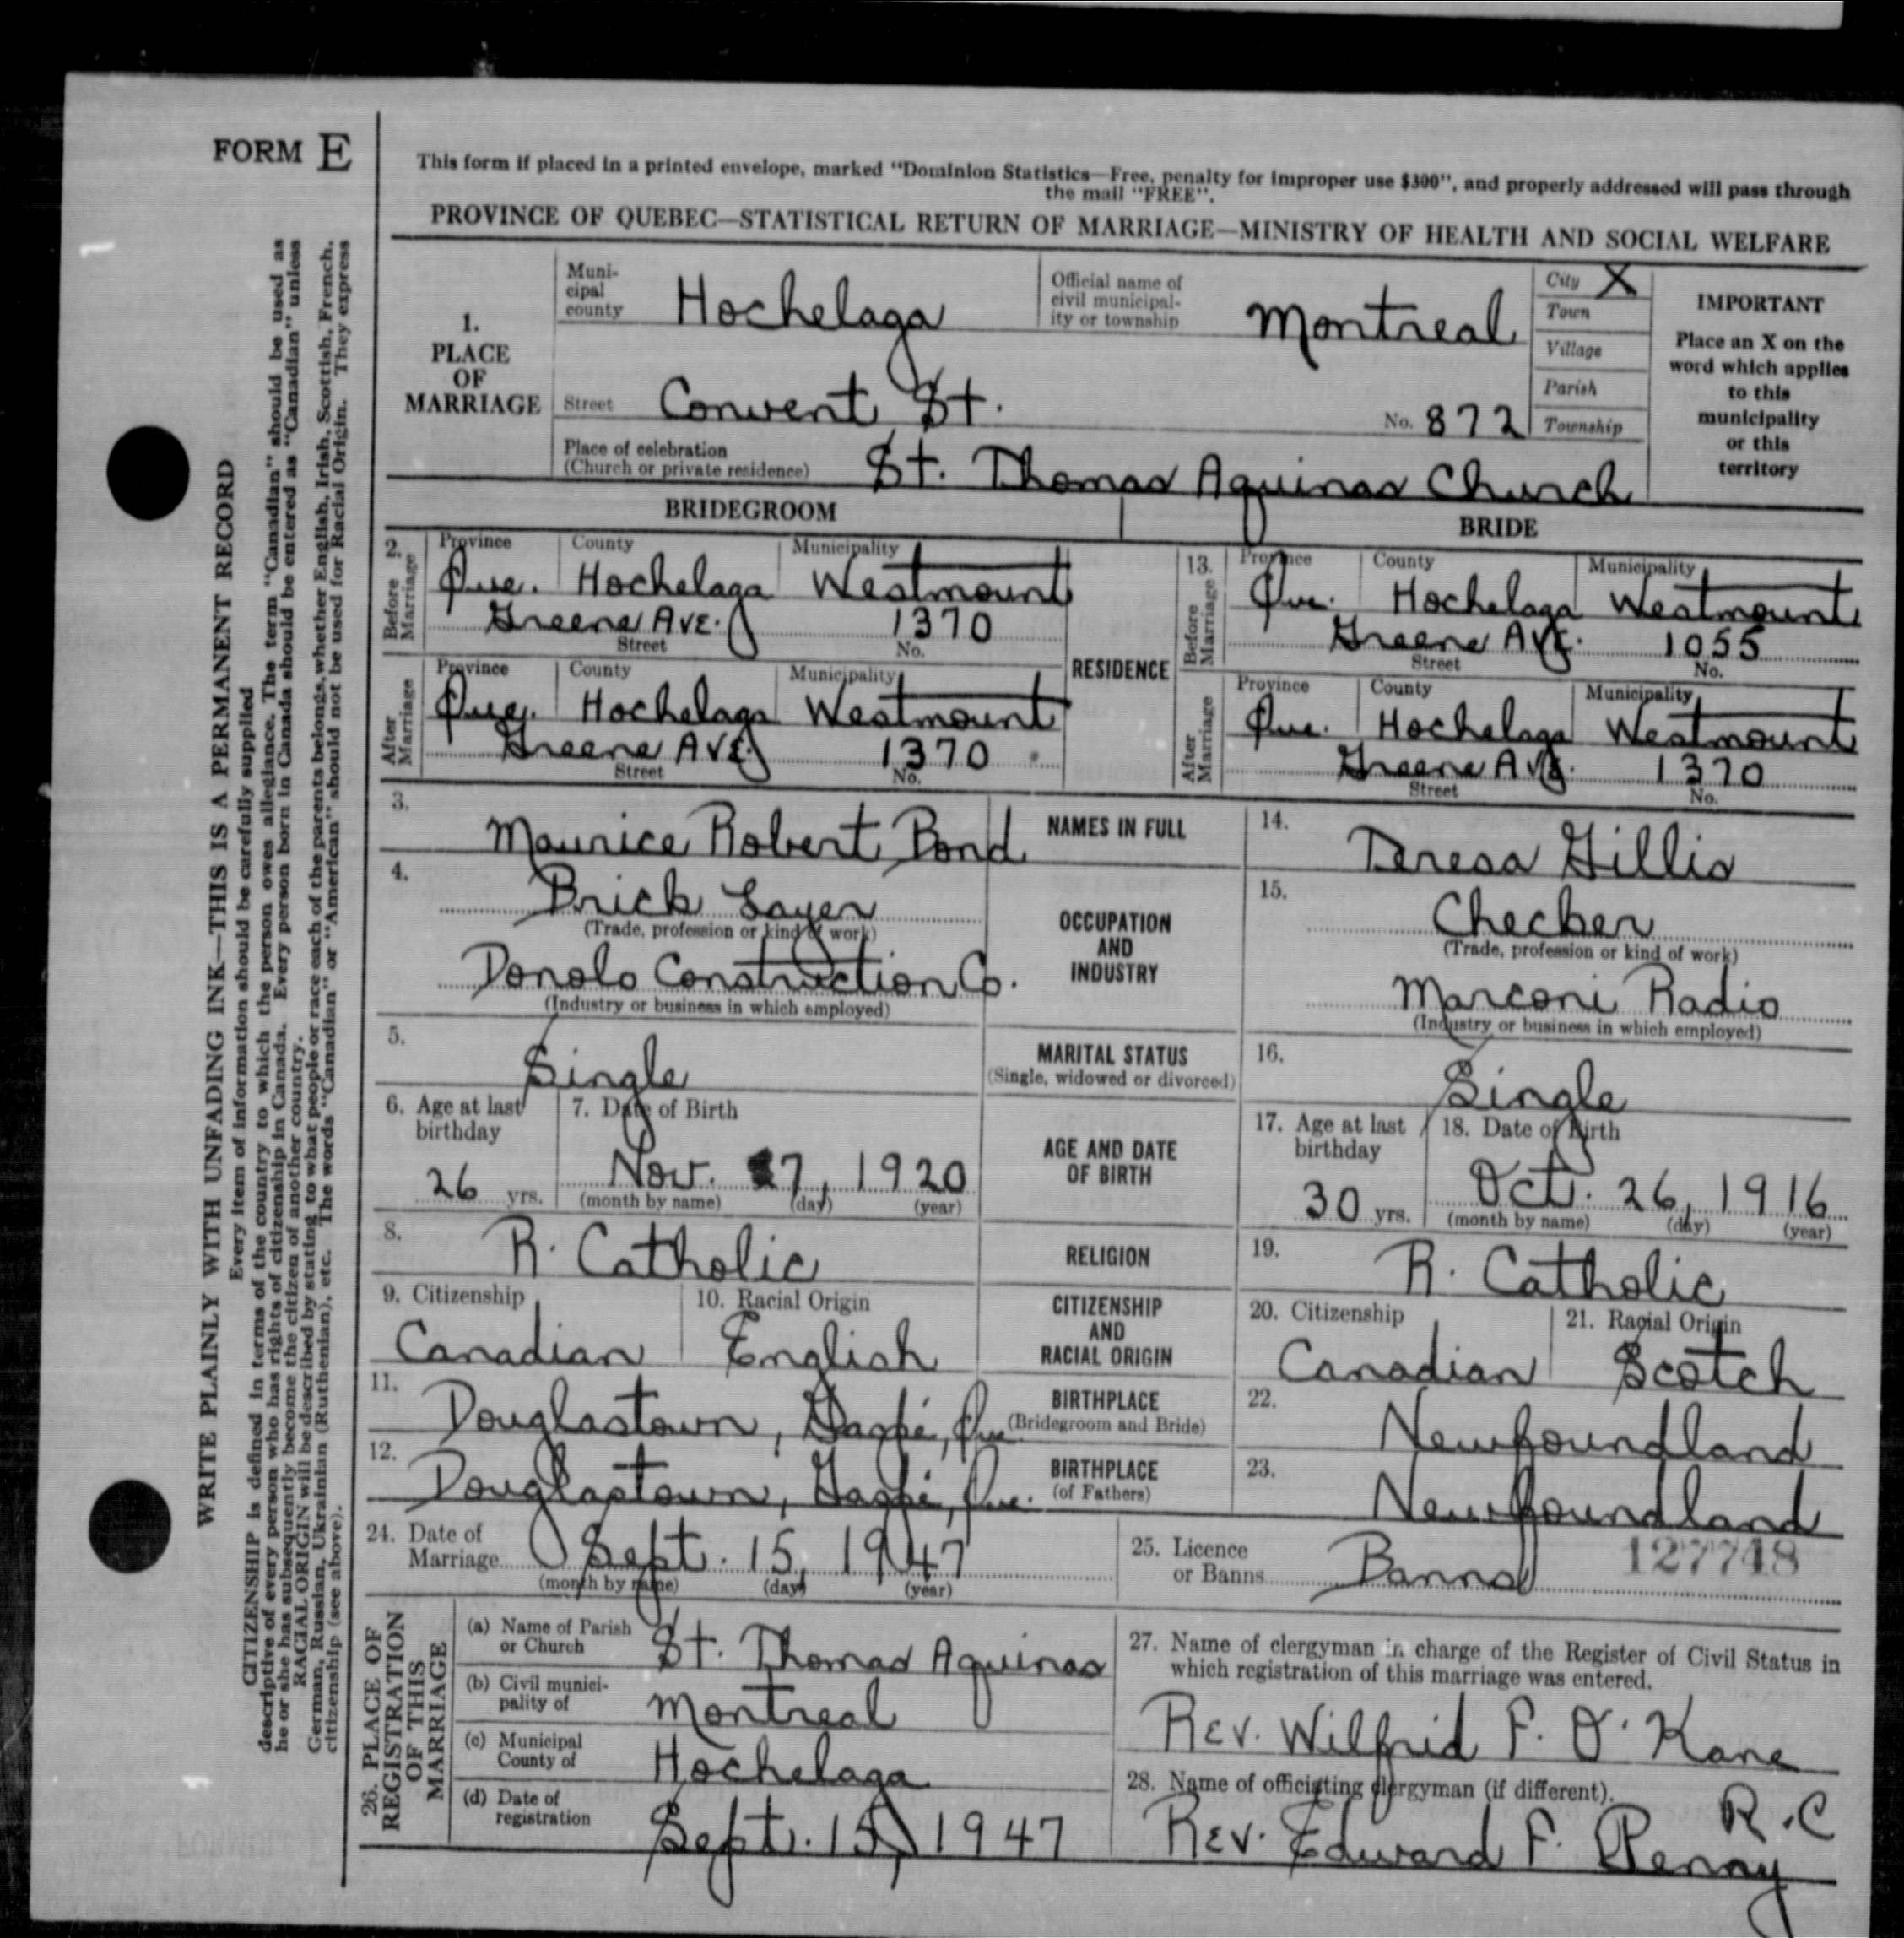 FORM E
This form if placed in a printed envelope, marked "Dominion Statistics—Free, penalty for improper use $300", and properly addressed will pass through
the mail "FREE".
PROVINCE OF QUEBEC—STATISTICAL RETURN OF MARRIAGE—MINISTRY OF HEALTH AND SOCIAL WELFARE
WRITE PLAINLY WITH UNFADING INK—THIS IS A PERMANENT RECORD
Every item of information should be carefully supplied
CITIZENSHIP is defined in terms of the country to which the person owes allegiance. The term "Canadian" should be used as
descriptive of every person who has rights of citizenship in Canada. Every person born in Canada should be entered as "Canadian" unless
he or she has subsequently become the citizen of another country.
RACIAL ORIGIN will be described by stating to what people or race each of the parents belongs, whether English, Irish, Scottish, French,
German, Russian, Ukrainian (Ruthenian), etc. The words "Canadian" or "American" should not be used for Racial Origin. They express
citizenship (see above).
1. PLACE OF MARRIAGE
Municipal county Hochelaga
Official name of civil municipality or township Montreal
City X
Town
Village
Parish
Township
IMPORTANT
Place an X on the
word which applies
to this
municipality
or this
territory
Street Convent St. No. 872
Place of celebration
(Church or private residence) St. Thomas Aquinas Church
BRIDEGROOM BRIDE
RESIDENCE
2. Before Marriage
Province County Municipality
Que. Hochelaga Westmount
Greene AVE. 1370
Street No.
13. Before Marriage
Province County Municipality
Que. Hochelaga Westmount
Greene AVE. 1055
Street No.
After Marriage
Province County Municipality
Que. Hochelaga Westmount
Greene AVE. 1370
Street No.
After Marriage
Province County Municipality
Que. Hochelaga Westmount
Greene AVE. 1370
Street No.
3. Maurice Robert Bond NAMES IN FULL 14. Teresa Gillis
4. Brick Layer OCCUPATION AND INDUSTRY 15. Checker
(Trade, profession or kind of work) (Trade, profession or kind of work)
Donolo Construction Co. Marconi Radio
(Industry or business in which employed) (Industry or business in which employed)
5. Single MARITAL STATUS 16. Single
(Single, widowed or divorced)
6. Age at last birthday 7. Date of Birth AGE AND DATE OF BIRTH 17. Age at last birthday 18. Date of Birth
26 yrs. Nov. 7, 1920 30 yrs. Oct. 26, 1916
(month by name) (day) (year) (month by name) (day) (year)
8. R. Catholic RELIGION 19. R. Catholic
9. Citizenship 10. Racial Origin CITIZENSHIP AND RACIAL ORIGIN 20. Citizenship 21. Racial Origin
Canadian English Canadian Scotch
11. Douglastown, Gaspé, Que. BIRTHPLACE (Bridegroom and Bride) 22. Newfoundland
12. Douglastown, Gaspé, Que. BIRTHPLACE (of Fathers) 23. Newfoundland
24. Date of Marriage Sept. 15, 1947
(month by name) (day) (year)
25. Licence or Banns Banns 127748
26. PLACE OF REGISTRATION OF THIS MARRIAGE
(a) Name of Parish or Church St. Thomas Aquinas
(b) Civil municipality of Montreal
(c) Municipal County of Hochelaga
(d) Date of registration Sept. 15, 1947
27. Name of clergyman in charge of the Register of Civil Status in
which registration of this marriage was entered.
Rev. Wilfrid P. O'Kane
28. Name of officiating clergyman (if different).
R.C
Rev. Edward F. Penny